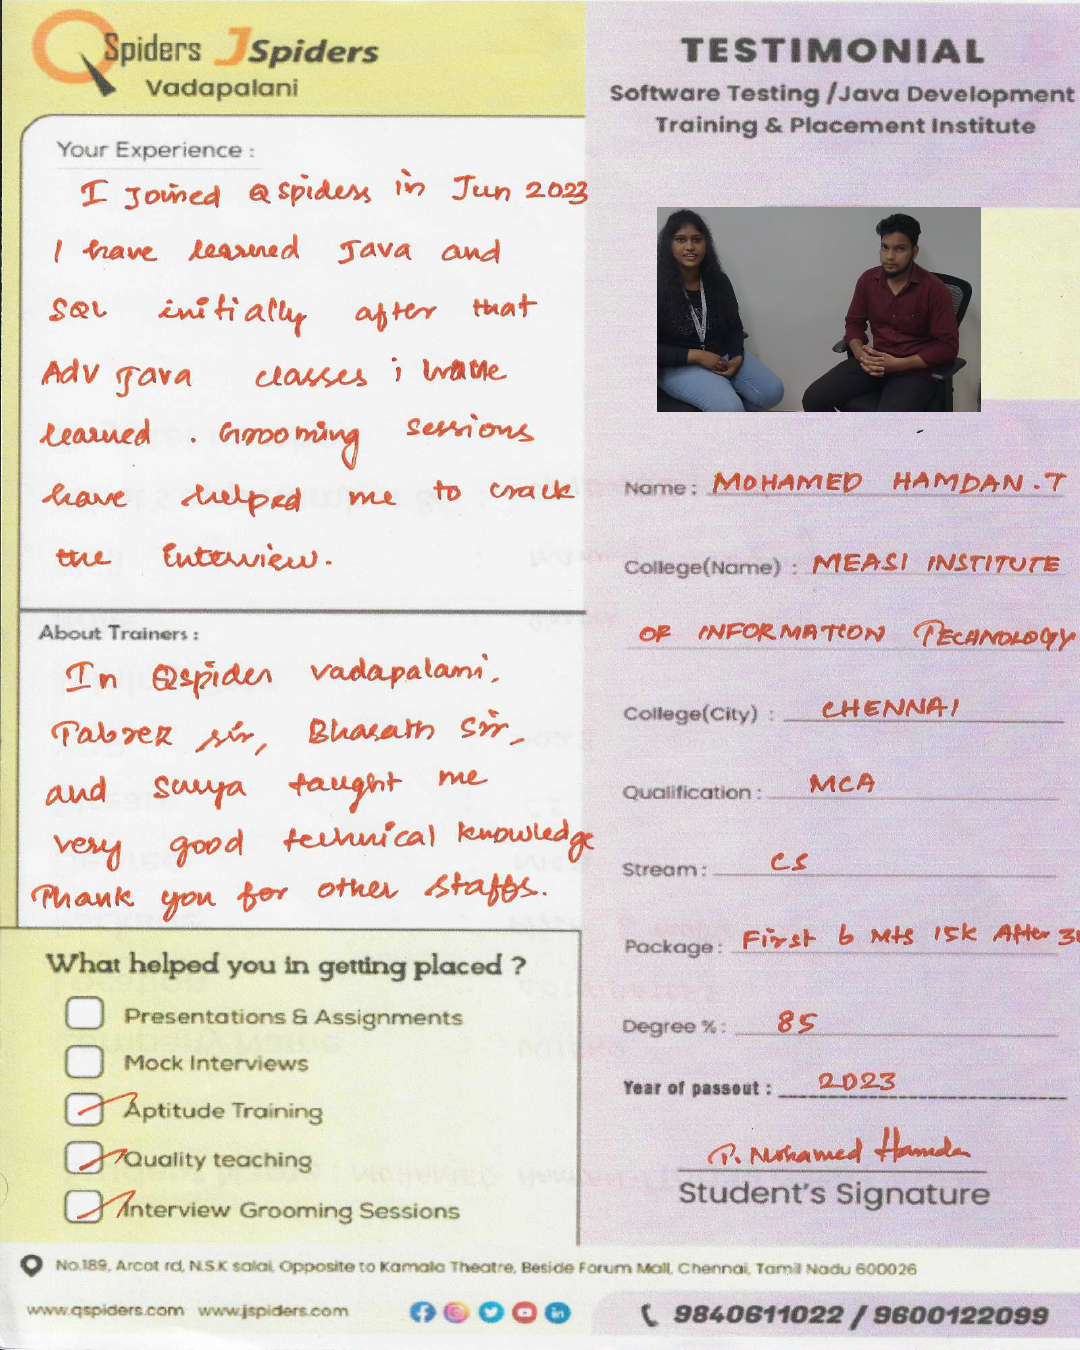 QSpiders JSpiders
Vadapalani
TESTIMONIAL
Software Testing /Java Development
Training & Placement Institute
Your Experience :
I Joined Qspiders in Jun 2023
I have learned Java and
SQL initially after that
Adv Java classes i
learned . Grooming sessions
have helped me to crack
the Interview.
About Trainers :
In Qspider vadapalani,
Tabrez sir, Bharath Sir,
and Surya taught me
very good technical knowledge
Thank you for other staffs.
What helped you in getting placed ?
Presentations & Assignments
Mock Interviews
Aptitude Training
Quality teaching
Interview Grooming Sessions
Name : MOHAMED HAMDAN .T
College(Name) : MEASI INSTITUTE
OF INFORMATION TECHNOLOGY
College(City) : CHENNAI
Qualification : MCA
Stream : CS
Package : First 6 Mts 15k After
Degree % : 85
Year of passout : 2023
T. Mohamed Hamdan
Student's Signature
No.189, Arcot rd, N.S.K salai, Opposite to Kamala Theatre, Beside Forum Mall, Chennai, Tamil Nadu 600026
www.qspiders.com www.jspiders.com
9840611022 / 9600122099